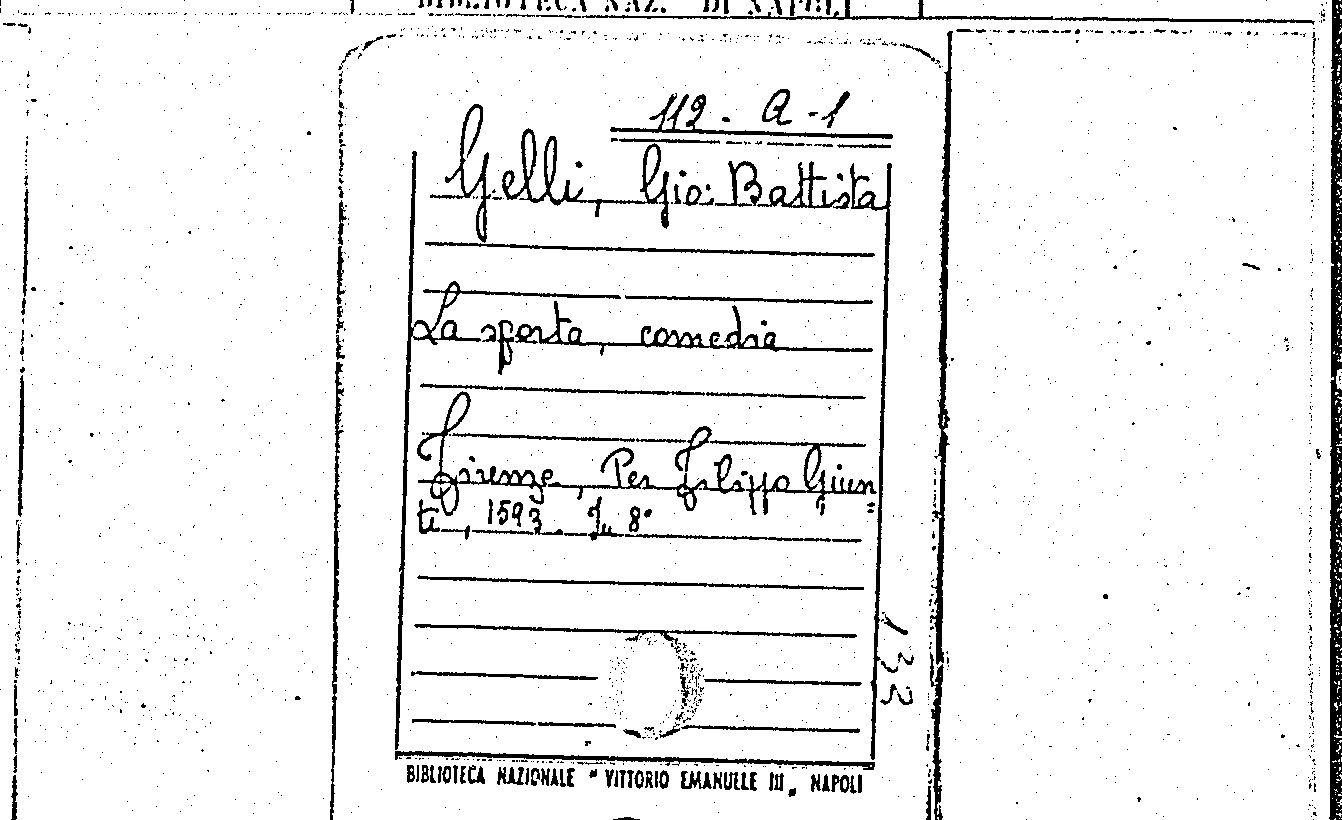 BIBLIOTECA NAZ. DI NAPOLI
112 - A - 1
Gelli, Gio: Battista
La sporta, comedia
Firenze, Per Filippo Giun=
ti, 1593. In 8°
133
BIBLIOTECA NAZIONALE " VITTORIO EMANUELE III „ NAPOLI